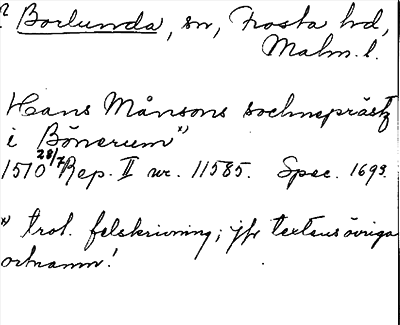 ? Borlunda, sn, Frosta hd,
Malm. l.
Hans Månsons sochneprästz
i Bönerum *)
1510 28/7 Rep. II nr. 11585. Spec. 1693.
*) trol. felskrivning; jfr textens övriga
ortnamn!